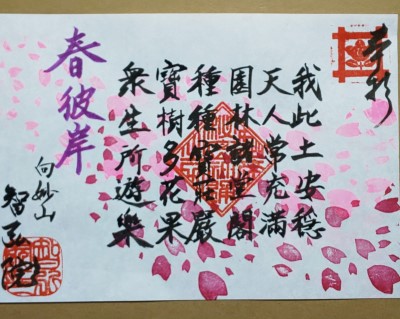 奉彩
我此土安穏
天人常充満
園林諸堂閣
種種寶荘厳
寶樹多花果
衆生所遊樂
春彼岸
向妙山